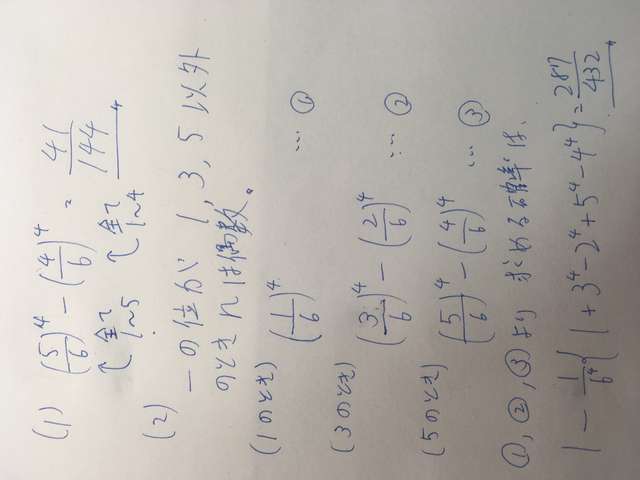 (1) (5/6)^4 - (4/6)^4 = 41/144
↑全て 1~5 ↑全て 1~4
(2) 一の位が 1, 3, 5 以外
のとき nは偶数。
(1のとき) (1/6)^4 … ①
(3のとき) (3/6)^4 - (2/6)^4 … ②
(5のとき) (5/6)^4 - (4/6)^4 … ③
①, ②, ③より 求める確率は、
1 - 1/6^4 { 1 + 3^4 - 2^4 + 5^4 - 4^4 } = 287/432